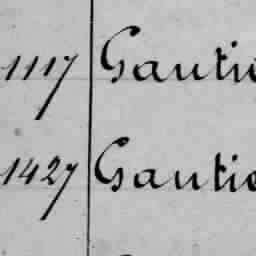 1117 Gautie
1427 Gautie